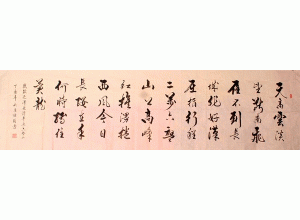 天高雲淡
望断南飛
雁不到長
城非好漢
屈指行程
二萬六盤
山上高峰
紅旗漫捲
西風今日
長纓在手
何時縛住
蒼龍